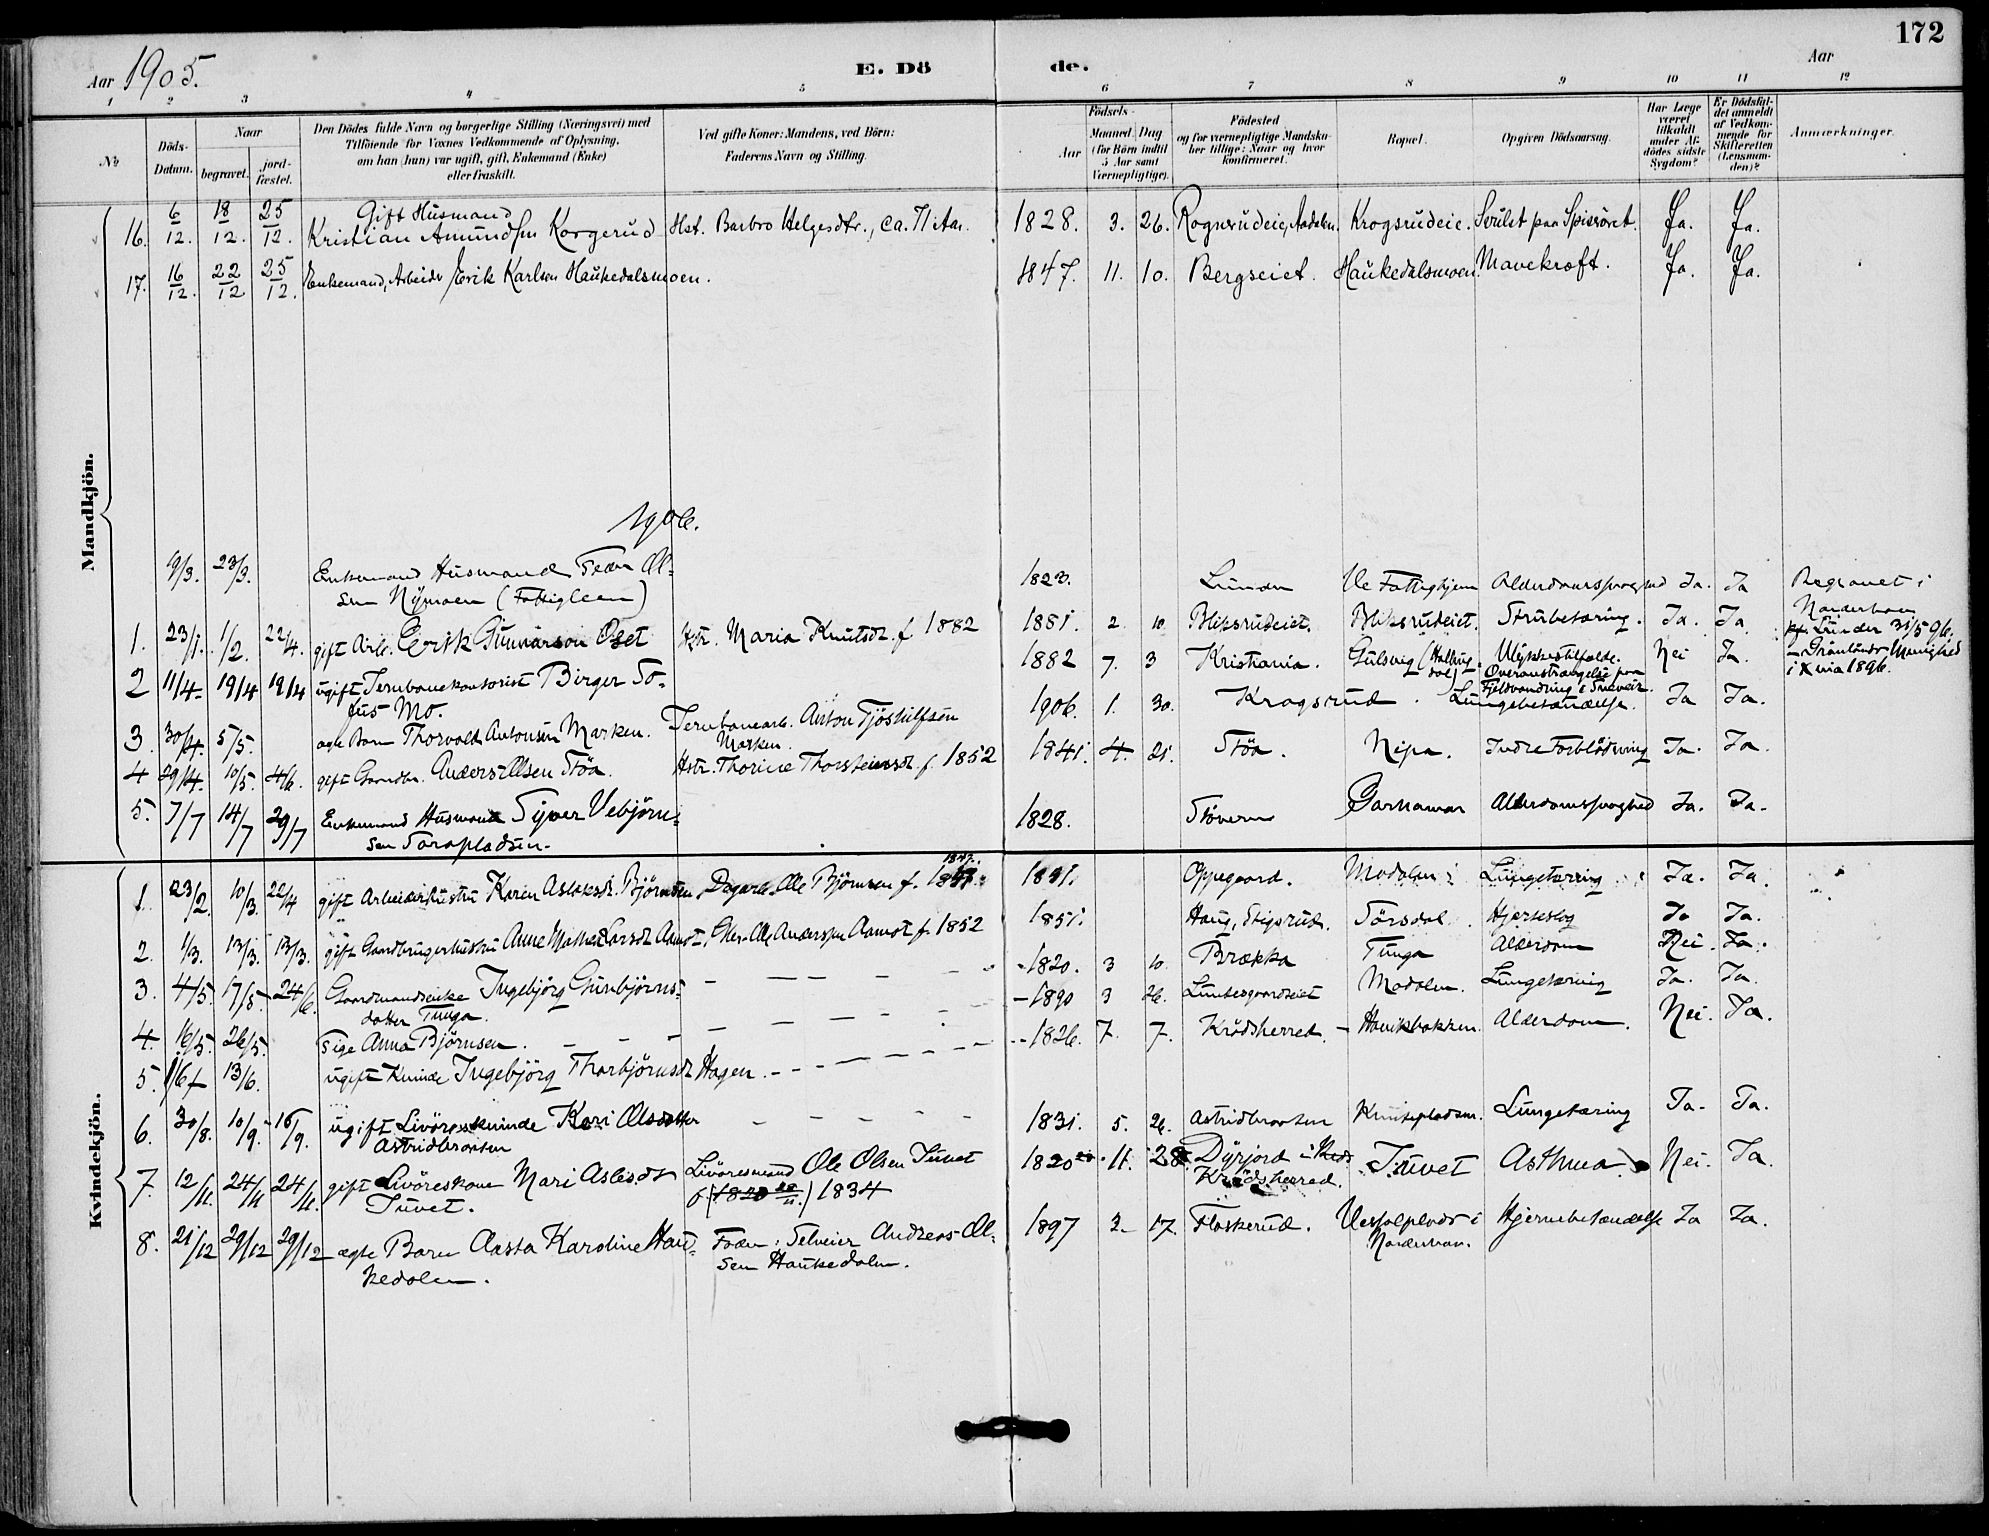 172
Aar 1905.
E. Dö
de.
Aar
1 2 3 4 5 6 7 8 9 10 11 12
No
Döds-Datum.
Naar
begravet.
jord-fæstet.
Den Dödes fulde Navn og borgerlige Stilling (Næringsvei) med
Tilföiende for Voxnes Vedkommende af Oplysning,
om han (hun) var ugift, gift, Enkemand (Enke)
eller fraskilt.
Ved gifte Koner: Mandens, ved Börn:
Faderens Navn og Stilling.
Födsels-
Aar
Maaned Dag
(for Börn indtil
5 Aar samt
Værnepligtige).
Födested
og for værnepligtige Mandska-
ber tillige: Naar og hvor
konfirmeret.
Bopæl.
Opgiven Dödsaarsag.
Har Læge
været
tilkaldt
under Af-
dödes sidste
Sygdom?
Er Dödsfal-
det anmeldt
af Vedkom-
mende for
Skifteretten
(Lensman-
den)?
Anmærkninger.
Mandkjön.
16. 6/12. 18/12. 25/12. Gift Husmand
Kristian Amundsen Korgerud Hst. Barbro Helgesdtr., ca. 71 Aar. 1828. 3. 26. Rognrudeie, Aadalen. Krogsrudeie. Svulst paa Spiserøret. Ja. Ja.
17. 16/12. 22/12 25/12. Enkemand, Arbeider Erik Karlsen Haukedalsmoen. 1847. 11. 10. Bergseiet. Haukedalsmoen. Mavekræft. Ja. Ja.
1906.
19/3. 23/3. Enkemand Husmand Peder Ol-
sen Nymoen (Fattiglem) 1823. Lunder Ve Fattighjem Alderdomssvaghed Ja. Ja Begravet i
Norderhov
1. 23/1. 1/2. 22/4. gift Arb. Eerik Gunnarson Oset Hstr. Maria Knutsdt. f 1882 1881. 2 10 Bliksrudeiet. Bliksrudeiet. Strubetæring. Ja. Ja
2 11/4. 19/4 19/4 ugift Jernbanekontorist Birger To-
fus Mo. 1882 7. 3 Kristiania. Gulsvig (Hallingdal) Ulykkestilfælde.
Overanstrængelse paa
Fjeldvandring i Snevær. Nei Ja. Grønlands Menighed
i Xnia 1896.
3. 30/4. 5/5. ægte Barn Thorvald Antonsen Marken. Jernbanearb. Anton Tjøstulfsen
Marken. 1906. 1. 30. Krogsrud. Lungebetændelse. Ja Ja.
4 29/4. 10/5. 4/6. gift Gaardbr. Anders Olsen Stöa. Hstr. Thorine Thorsteinsdt. f. 1852 1841. 4. 21. Stöa. Nipa. Indre Forblødning Ja. Ja.
5. 7/7 14/7 29/7 Enkemand Husmand Syver Vebjörn-
sen Torapladsen. 1828. Stövern Garhamar Alderdomssvaghed Ja. Ja.
Kvindekjön.
1. 23/2. 10/3. 22/4 gift Arbeiderhustru Karen Aslaksdt. Björnsen, Dagarb. Ole Björnsen f. 1847. 1841. Oppegaard. Modalen Lungetæring Ja. Ja.
2. 1/3. 13/3. 13/3. gift Gaardbrugerhustru Anne Mathea Larsdt. Aamot, Gbr. Ole Andersen Aamot f. 1852 1851. Haug, Stigsrud. Sörsdal. Hjerteslag Ja Ja.
3. 4/5. 17/5. 24/6. Gaardmandsenke Ingebjörg Gunbjörns-
datter Tunga. 1820. 3 10. Brækka Tunga Alderdom Nei. Ja.
4. 16/5. 26/5. Pige Anna Björnsen. 1890 3 26. Lundesgaardseiet Modalen. Lungetæring Ja. Ja.
5. 1/6 13/6. ugift Kvinde Ingebjörg Thorbjörnsdt. Hagen. 1826. 7. 7. Krödsherred. Haverkbakken. Alderdom. Nei. Ja.
6. 30/8. 10/9. 16/9. ugift Livöreskvinde Kari Olsdatter
Astridbraaten 1831. 5. 26. Astridbraaten Knutspladsen. Lungetæring Ja. Ja.
7. 12/11. 24/11 24/11. gift Livöreskone Mari Aslesdt
Tuvet. Livöresmand Ole Olsen Tuvet
f. (1820 28/11.) 1834 1820 11. 28. Dyrjord i
Krödsherred. Tuvet Asthma Nei. Ja.
8. 21/12 29/12 29/12 ægte Barn Aasta Karoline Hau-
kedalen. Fader: Selveier Andreas Ol-
sen Haukedalen. 1897 2 17. Flaskerud. Vesselplads i
Norderhov. Hjernebetændelse Ja Ja.